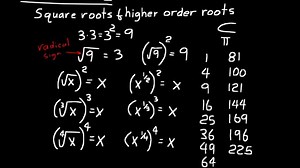 Square roots & higher order roots
3·3=3²=9
radical sign
√9 = 3 (√9)² = 9
(√x)² = x (x^½)² = x
(∛x)³ = x (x^⅓)³ = x
(∜x)⁴ = x (x^¼)⁴ = x
1 81
4 100
9 121
16 144
25 169
36 196
49 225
64